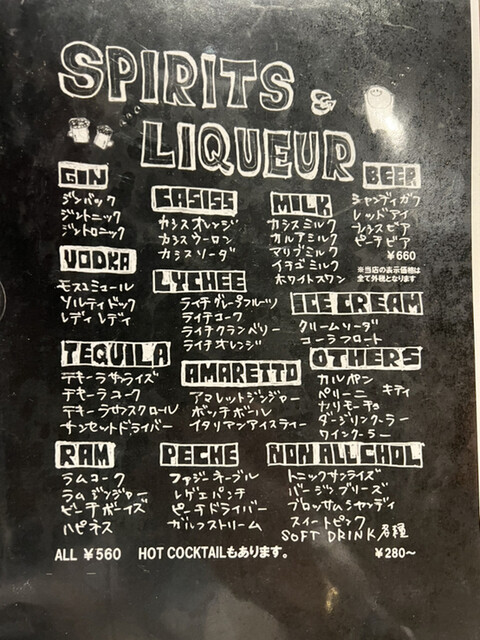 SPIRITS &
LIQUEUR
GIN
ジンバック
ジントニック
ジントロニック
VODKA
モスコミュール
ソルティドック
レディレディ
TEQUILA
テキーラサンライズ
テキーラコーク
テキーラサウスクロール
サンセットドライバー
RAM
ラムコーク
ラムジンジャー
ビーチボーイズ
ハピネス
CASISS
カシスオレンジ
カシスウーロン
カシスソーダ
LYCHEE
ライチグレープフルーツ
ライチコーク
ライチクランベリー
ライチオレンジ
AMARETTO
アマレットジンジャー
ボッチボール
イタリアンアイスティー
PECHE
ファジーネーブル
レゲエパンチ
ピーチドライバー
ガルフストリーム
MILK
カシスミルク
カルアミルク
マリブミルク
イチゴミルク
ホワイトスワン
BEER
シャンディガフ
レッドアイ
カシスビア
ピーチビア
¥660
※当店の表示価格は
全て外税となります
ICE CREAM
クリームソーダ
コーラフロート
OTHERS
カルパン
ベリーニ
キティ
カリモーチョ
ダージリンクーラー
ワインクーラー
NON ALLCHOL
トニックサンライズ
バージンブリーズ
ブロッサムシャンディ
スイートピンク
SOFT DRINK 各種
¥280~
ALL ¥560 HOT COCKTAILもあります。